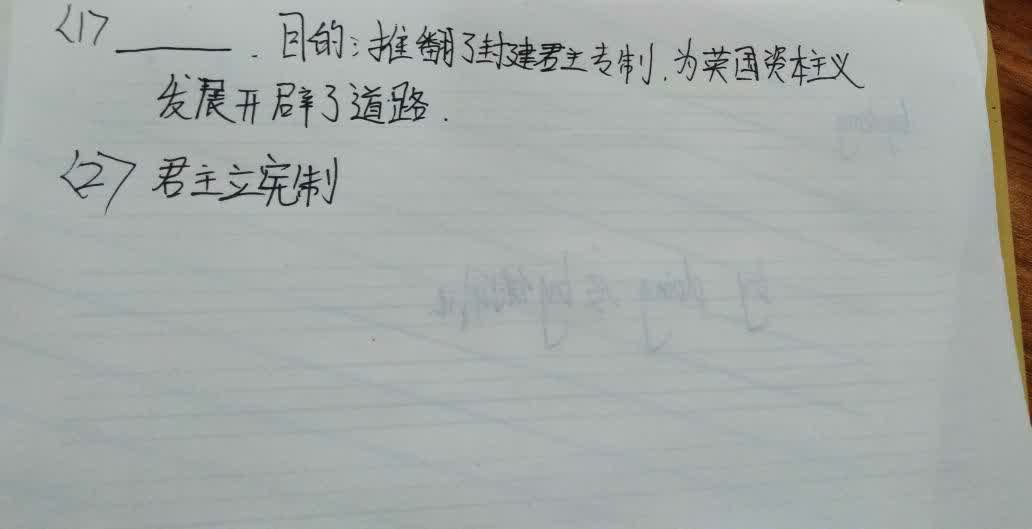 <1> ______. 目的：推翻了封建君主专制，为英国资本主义
发展开辟了道路.
<2> 君主立宪制